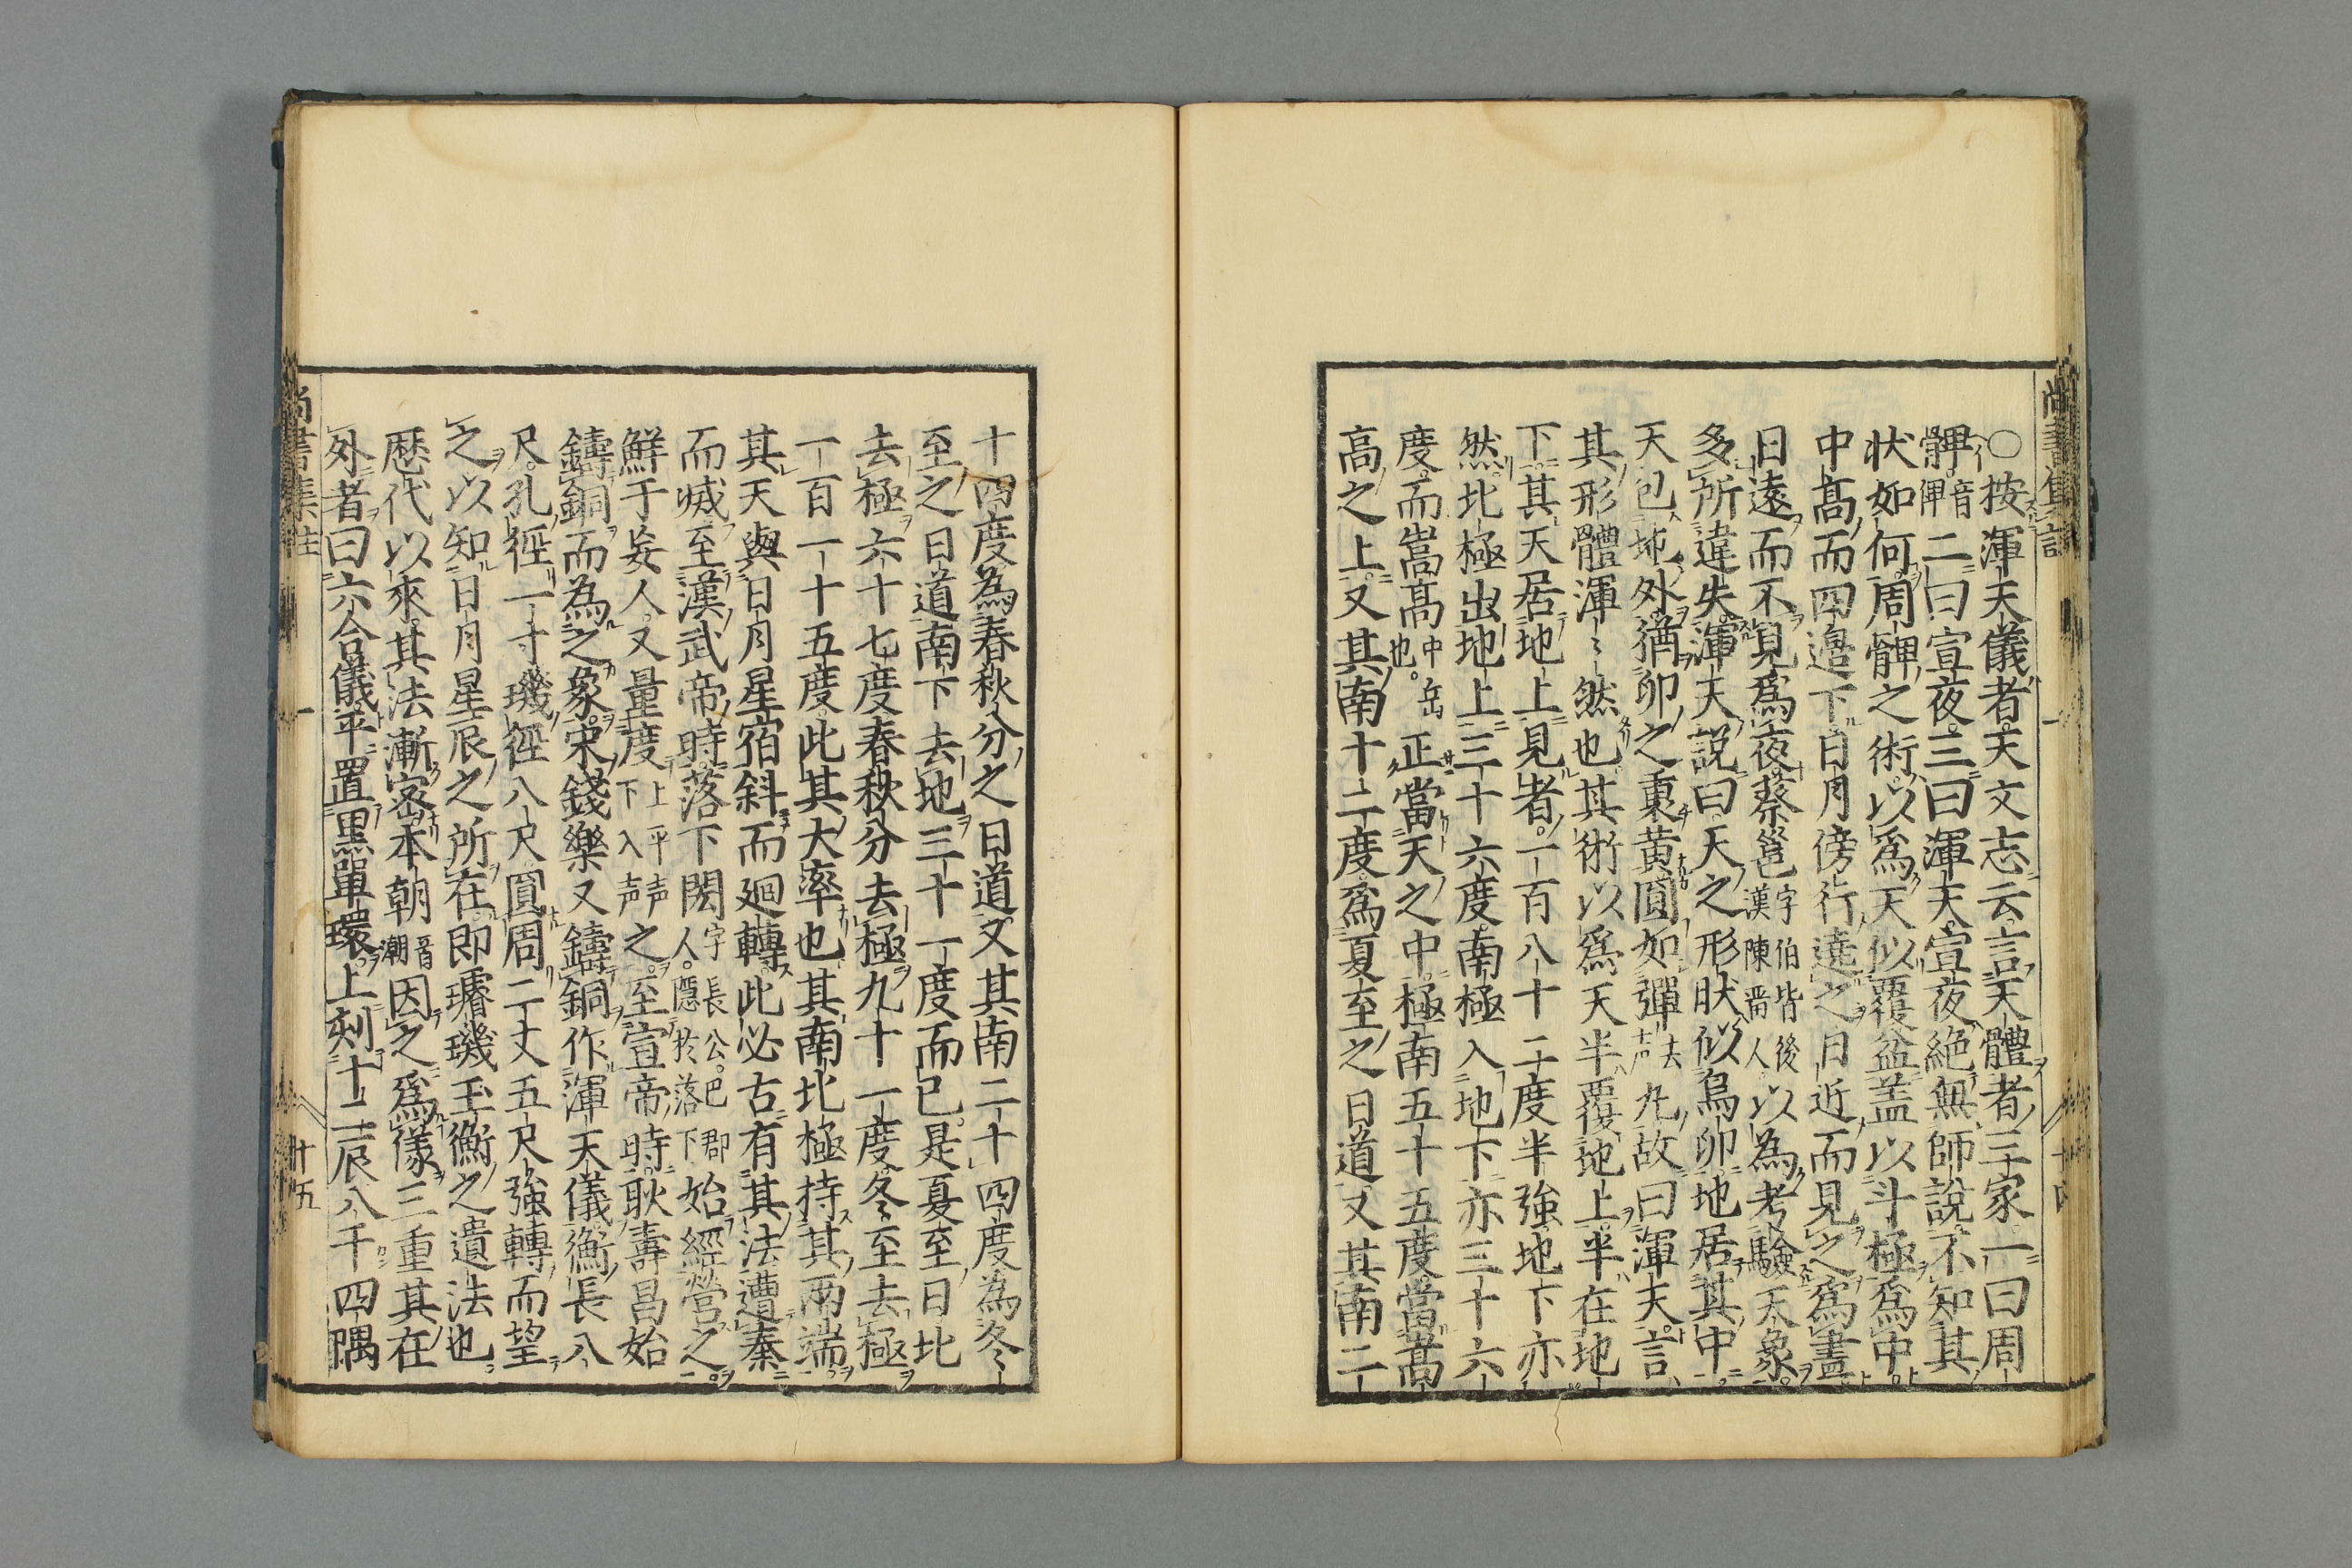 尚書集註 一 十四
〇按渾天儀者天文志云言天體者三家一曰周
髀音俾二曰宣夜三曰渾天宣夜絶無師説不知其
状如何周髀之術以爲天似覆盆蓋以斗極爲中
中髙而四邉下日月傍行遶之日近而見之爲晝
日遠而不見爲夜蔡邕字伯喈後漢陳畱人以為考驗天象
多所違失渾天説曰天之形状似鳥卵地居其中
天包地外猶卵之裹黄圓如彈去声丸故曰渾天言
其形體渾〻然也其術以爲天半覆地上半在地
下其天居地上見者一百八十二度半強地下亦
然北極出地上三十六度南極入地下亦三十六
度而嵩髙中岳也。正當天之中極南五十五度當髙
高之上又其南十二度爲夏至之日道又其南二
十四度為春秋分之日道又其南二十四度為冬
至之日道南下去地三十一度而已是夏至日北
去極六十七度春秋分去極九十一度冬至去極
一百一十五度此其大率也其南北極持其兩端
其天與日月星宿斜而廻轉此必古有其法遭秦
而滅至漢武帝時落下閎字長公。巴郡人。隠於落下始經營之
鮮于妄人又量度上平声下入声之至宣帝時耿壽昌始
鑄銅而為之象宋錢樂又鑄銅作渾天儀衡長八
尺孔徑一寸璣徑八尺圓周二丈五尺強轉而望
之以知日月星辰之所在即璿璣玉衡之遺法也
歴代以來其法漸宻本朝音潮因之爲儀三重其在
外者曰六合儀平置黒單環上刻十二辰八千四隅
尚書集註 一 十五